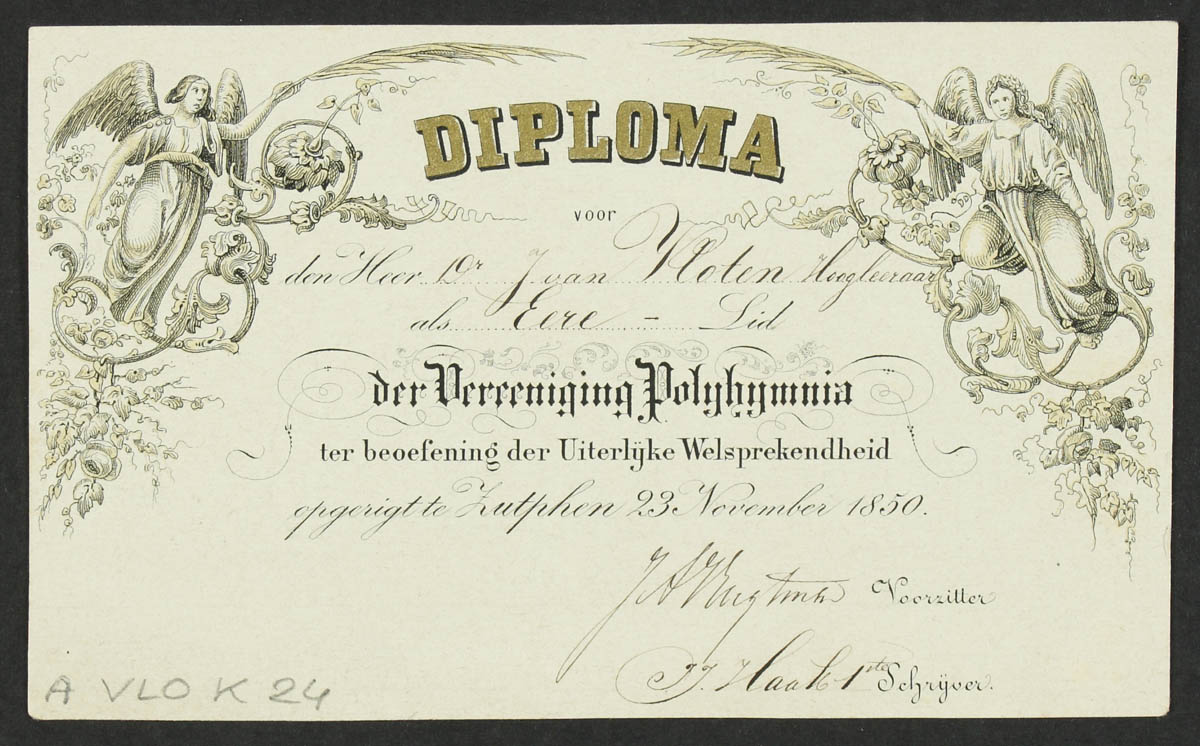 DIPLOMA
voor
den Heer Dr. J van Vloten Hoogleeraar
als Eere - Lid
der Vereeniging Polyhymnia
ter beoefening der Uiterlijke Welsprekendheid
opgerigt te Zutphen 23 November 1850.
Voorzitter
J. Haak 1ste Schrijver.
A VLO K 24